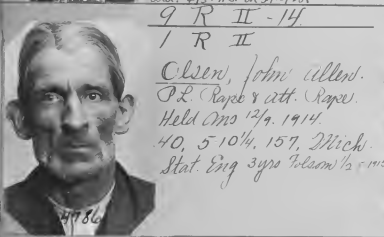 9 R II - 14.
1 R II
Olsen, John Allen.
P.L. Rape & att. Rape.
Held Ans 12/9. 1914.
40, 5 10 1/4, 157, Mich.
Stat. Eng 3 yrs Folsom 1/2